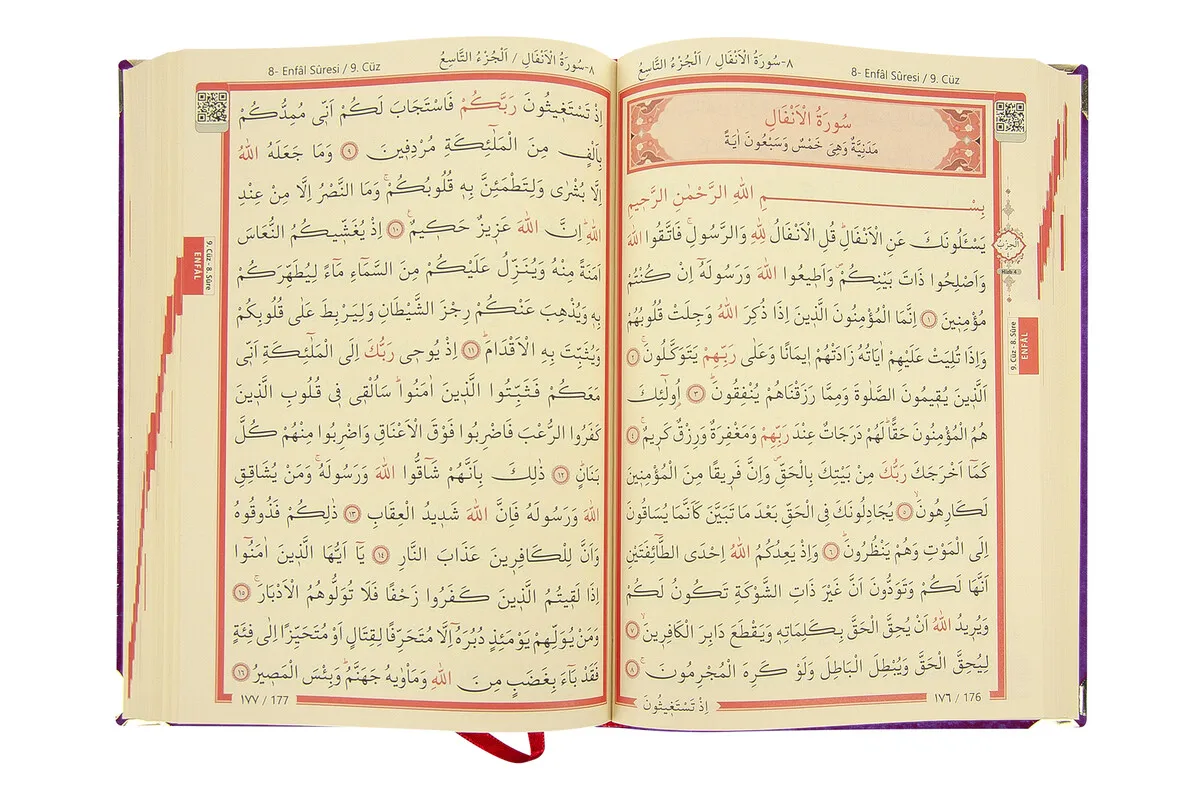 ٨-سُورَةُ الْاَنْفَالِ / اَلْجُزْءُ التَّاسِعُ
8- Enfâl Sûresi / 9. Cüz
سُورَةُ الْاَنْفَالِ
مَدَنِيَّةٌ وَهِىَ خَمْسٌ وَسَبْعُونَ اٰيَةً
بِسْمِ اللّٰهِ الرَّحْمٰنِ الرَّحٖيمِ
يَسْـَٔلُونَكَ عَنِ الْاَنْفَالِؕ قُلِ الْاَنْفَالُ لِلّٰهِ وَالرَّسُولِۚ فَاتَّقُوا اللّٰهَ
وَاَصْلِحُوا ذَاتَ بَيْنِكُمْࣕ وَاَطٖيعُوا اللّٰهَ وَرَسُولَهُٓ اِنْ كُنْتُمْ
مُؤْمِنٖينَ ١ اِنَّمَا الْمُؤْمِنُونَ الَّذٖينَ اِذَا ذُكِرَ اللّٰهُ وَجِلَتْ قُلُوبُهُمْ
وَاِذَا تُلِيَتْ عَلَيْهِمْ اٰيَاتُهُ زَادَتْهُمْ اٖيمَانًا وَعَلٰى رَبِّهِمْ يَتَوَكَّلُونَۚ ٢
اَلَّذٖينَ يُقٖيمُونَ الصَّلٰوةَ وَمِمَّا رَزَقْنَاهُمْ يُنْفِقُونَؕ ٣ اُو۬لٰٓئِكَ
هُمُ الْمُؤْمِنُونَ حَقًّاؕ لَهُمْ دَرَجَاتٌ عِنْدَ رَبِّهِمْ وَمَغْفِرَةٌ وَرِزْقٌ كَرٖيمٌۚ ٤
كَمَٓا اَخْرَجَكَ رَبُّكَ مِنْ بَيْتِكَ بِالْحَقِّࣕ وَاِنَّ فَرٖيقًا مِنَ الْمُؤْمِنٖينَ
لَكَارِهُونَۙ ٥ يُجَادِلُونَكَ فِى الْحَقِّ بَعْدَ مَا تَبَيَّنَ كَاَنَّمَا يُسَاقُونَ
اِلَى الْمَوْتِ وَهُمْ يَنْظُرُونَؕ ٦ وَاِذْ يَعِدُكُمُ اللّٰهُ اِحْدَى الطَّٓائِفَتَيْنِ
اَنَّهَا لَكُمْ وَتَوَدُّونَ اَنَّ غَيْرَ ذَاتِ الشَّوْكَةِ تَكُونُ لَكُمْ
وَيُرٖيدُ اللّٰهُ اَنْ يُحِقَّ الْحَقَّ بِكَلِمَاتِهٖ وَيَقْطَعَ دَابِرَ الْكَافِرٖينَۙ ٧
لِيُحِقَّ الْحَقَّ وَيُبْطِلَ الْبَاطِلَ وَلَوْ كَرِهَ الْمُجْرِمُونَۚ ٨
١٧٦ / 176
اِذْ تَسْتَغٖيثُونَ
اَلْحِزْبُ
Hizb 4
9. Cüz - 8. Sûre
ENFÂL
٨-سُورَةُ الْاَنْفَالِ / اَلْجُزْءُ التَّاسِعُ
8- Enfâl Sûresi / 9. Cüz
اِذْ تَسْتَغٖيثُونَ رَبَّكُمْ فَاسْتَجَابَ لَكُمْ اَنّٖى مُمِدُّكُمْ
بِاَلْفٍ مِنَ الْمَلٰٓئِكَةِ مُرْدِفٖينَ ٩ وَمَا جَعَلَهُ اللّٰهُ
اِلَّا بُشْرٰى وَلِتَطْمَئِنَّ بِهٖ قُلُوبُكُمْۚ وَمَا النَّصْرُ اِلَّا مِنْ عِنْدِ
اللّٰهِؕ اِنَّ اللّٰهَ عَزٖيزٌ حَكٖيمٌۚ ١٠ اِذْ يُغَشّٖيكُمُ النُّعَاسَ
اَمَنَةً مِنْهُ وَيُنَزِّلُ عَلَيْكُمْ مِنَ السَّمَٓاءِ مَٓاءً لِيُطَهِّرَكُمْ
بِهٖ وَيُذْهِبَ عَنْكُمْ رِجْزَ الشَّيْطَانِ وَلِيَرْبِطَ عَلٰى قُلُوبِكُمْ
وَيُثَبِّتَ بِهِ الْاَقْدَامَؕ ١١ اِذْ يُوحٖى رَبُّكَ اِلَى الْمَلٰٓئِكَةِ اَنّٖى
مَعَكُمْ فَثَبِّتُوا الَّذٖينَ اٰمَنُواؕ سَاُلْقٖى فٖى قُلُوبِ الَّذٖينَ
كَفَرُوا الرُّعْبَ فَاضْرِبُوا فَوْقَ الْاَعْنَاقِ وَاضْرِبُوا مِنْهُمْ كُلَّ
بَنَانٍؕ ١٢ ذٰلِكَ بِاَنَّهُمْ شَٓاقُّوا اللّٰهَ وَرَسُولَهُۚ وَمَنْ يُشَاقِقِ
اللّٰهَ وَرَسُولَهُ فَاِنَّ اللّٰهَ شَدٖيدُ الْعِقَابِ ١٣ ذٰلِكُمْ فَذُوقُوهُ
وَاَنَّ لِلْكَافِرٖينَ عَذَابَ النَّارِ ١٤ يَٓا اَيُّهَا الَّذٖينَ اٰمَنُٓوا
اِذَا لَقٖيتُمُ الَّذٖينَ كَفَرُوا زَحْفًا فَلَا تُوَلُّوهُمُ الْاَدْبَارَۚ ١٥
وَمَنْ يُوَلِّهِمْ يَوْمَئِذٍ دُبُرَهُٓ اِلَّا مُتَحَرِّفًا لِقِتَالٍ اَوْ مُتَحَيِّزًا اِلٰى فِئَةٍ
فَقَدْ بَٓاءَ بِغَضَبٍ مِنَ اللّٰهِ وَمَأْوٰيهُ جَهَنَّمُؕ وَبِئْسَ الْمَصٖيرُ ١٦
١٧٧ / 177
9. Cüz - 8. Sûre
ENFÂL